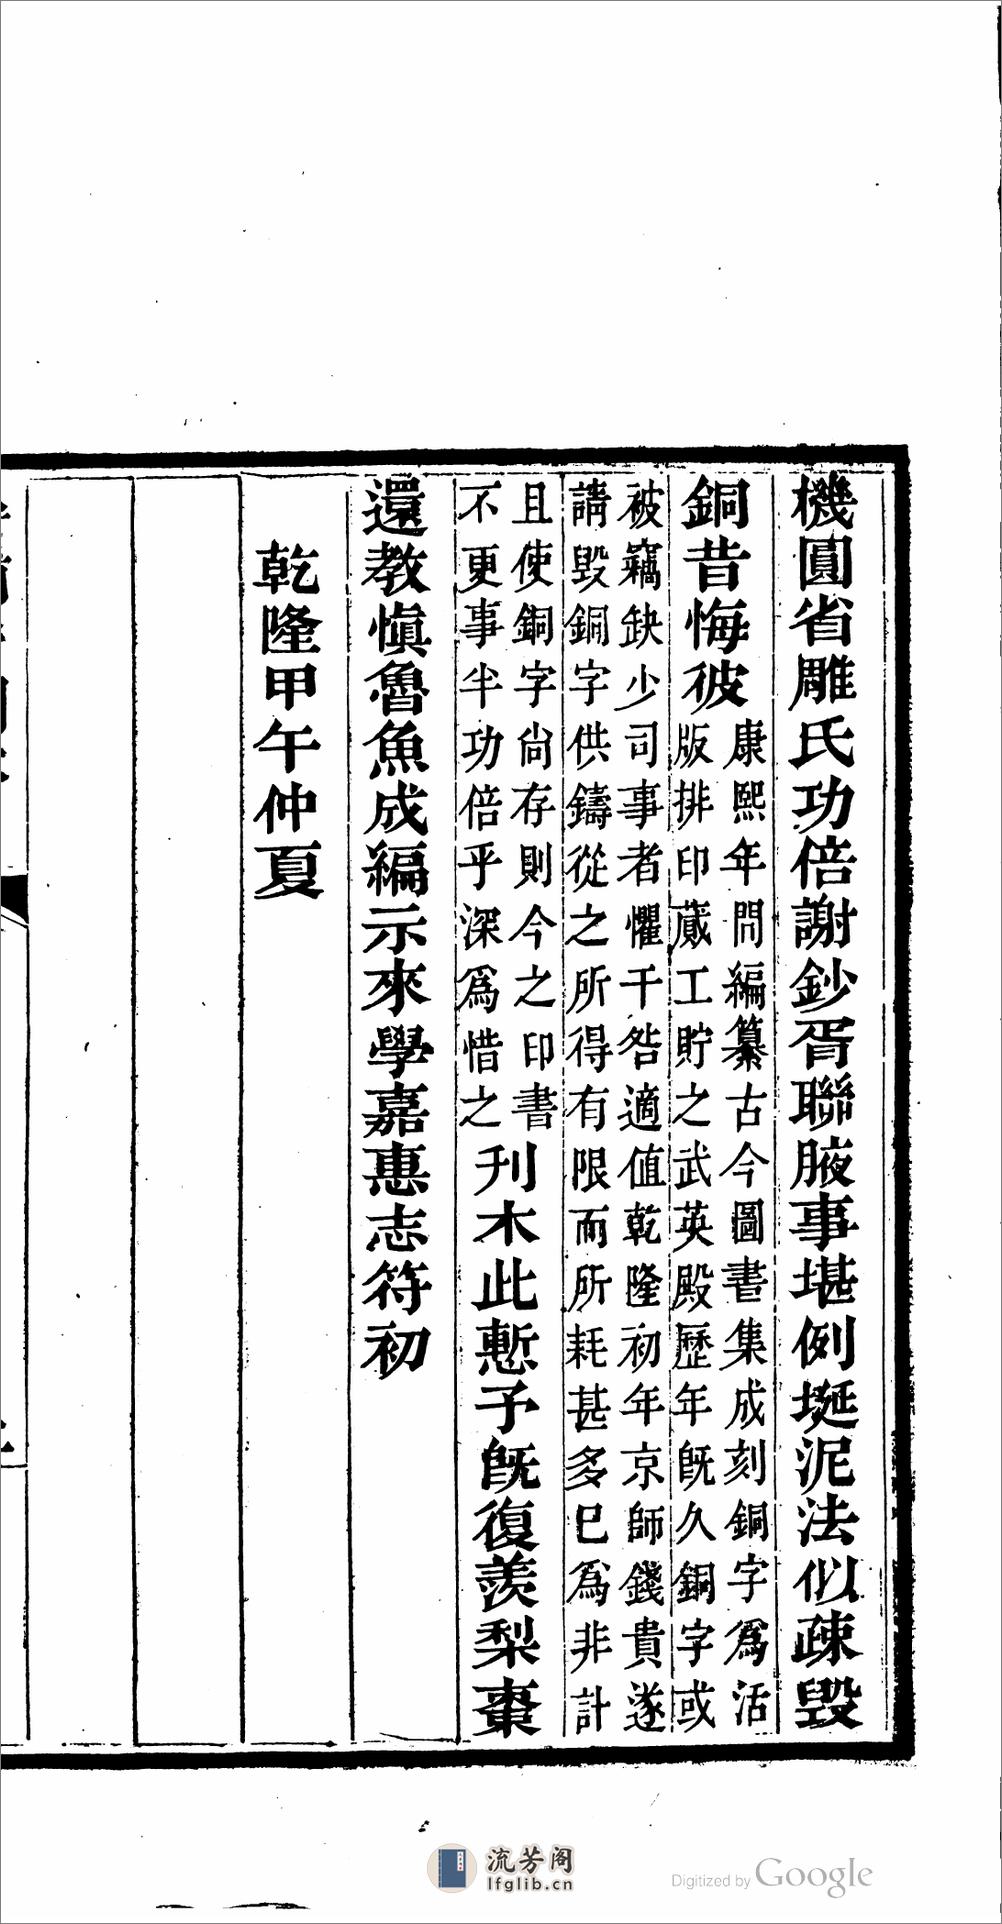 機圓省雕氏功倍謝鈔胥聯腋事堪例埏泥法似疎毀
銅昔悔彼
康熙年間編纂古今圖書集成刻銅字爲活
版排印蕆工貯之武英殿歷年既久銅字或
被竊缺少司事者懼干咎適值乾隆初年京師錢貴遂
請毀銅字供鑄從之所得有限而所耗甚多已爲非計
且使銅字尚存則今之印書
不更事半功倍乎深爲惜之
刋木此慙予既復羨梨棗
還教愼魯魚成編示來學嘉惠志符初
乾隆甲午仲夏
流芳阁
lfglib.cn
Digitized by Google